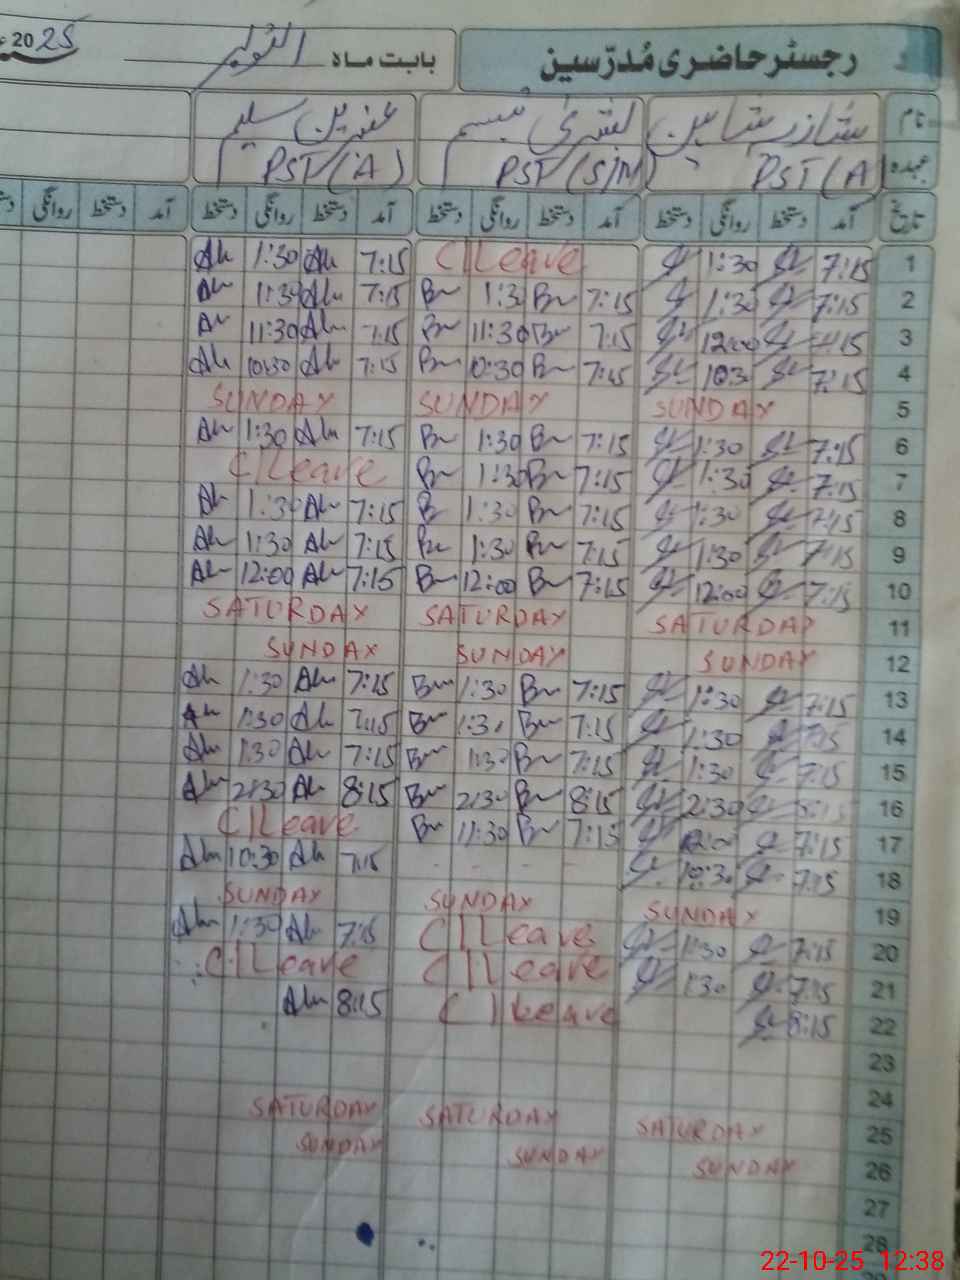 رجسٹر حاضری مُدرّسین بابت ماہ اکتوبر 2025
نام شازیہ شاہین بشریٰ تبسم عنبرین سلیم
عہدہ PST (A) PST (S/M) PST (A)
تاریخ آمد دستخط روانگی دستخط آمد دستخط روانگی دستخط آمد دستخط روانگی دستخط آمد دستخط روانگی
1 7:15 1:30 C/Leave 7:15 1:30
2 7:15 1:30 7:15 1:3 7:15 1:30
3 7:15 12:00 7:15 11:30 7:15 11:30
4 7:15 10:3 7:15 10:30 7:15 10:30
5 SUNDAY SUNDAY SUNDAY
6 7:15 1:30 7:15 1:30 7:15 1:30
7 7:15 1:30 7:15 1:30 C/Leave
8 7:15 1:30 7:15 1:30 7:15 1:30
9 7:15 1:30 7:15 1:30 7:15 1:30
10 7:15 12:00 7:15 12:00 7:15 12:00
11 SATURDAY SATURDAY SATURDAY
12 SUNDAY SUNDAY SUNDAY
13 7:15 1:30 7:15 1:30 7:15 1:30
14 7:15 1:30 7:15 1:3 7:15 1:30
15 7:15 1:30 7:15 1:30 7:15 1:30
16 8:15 2:30 8:15 2:30 8:15 2:30
17 7:15 12:00 7:15 11:30 C/Leave
18 7:15 10:30 7:15 10:30
19 SUNDAY SUNDAY SUNDAY
20 7:15 1:30 C/Leave 7:15 1:30
21 7:15 1:30 C/Leave C/Leave
22 8:15 C/Leave 8:15
23
24
25 SATURDAY SATURDAY SATURDAY
26 SUNDAY SUNDAY SUNDAY
27
28
22-10-25 12:38